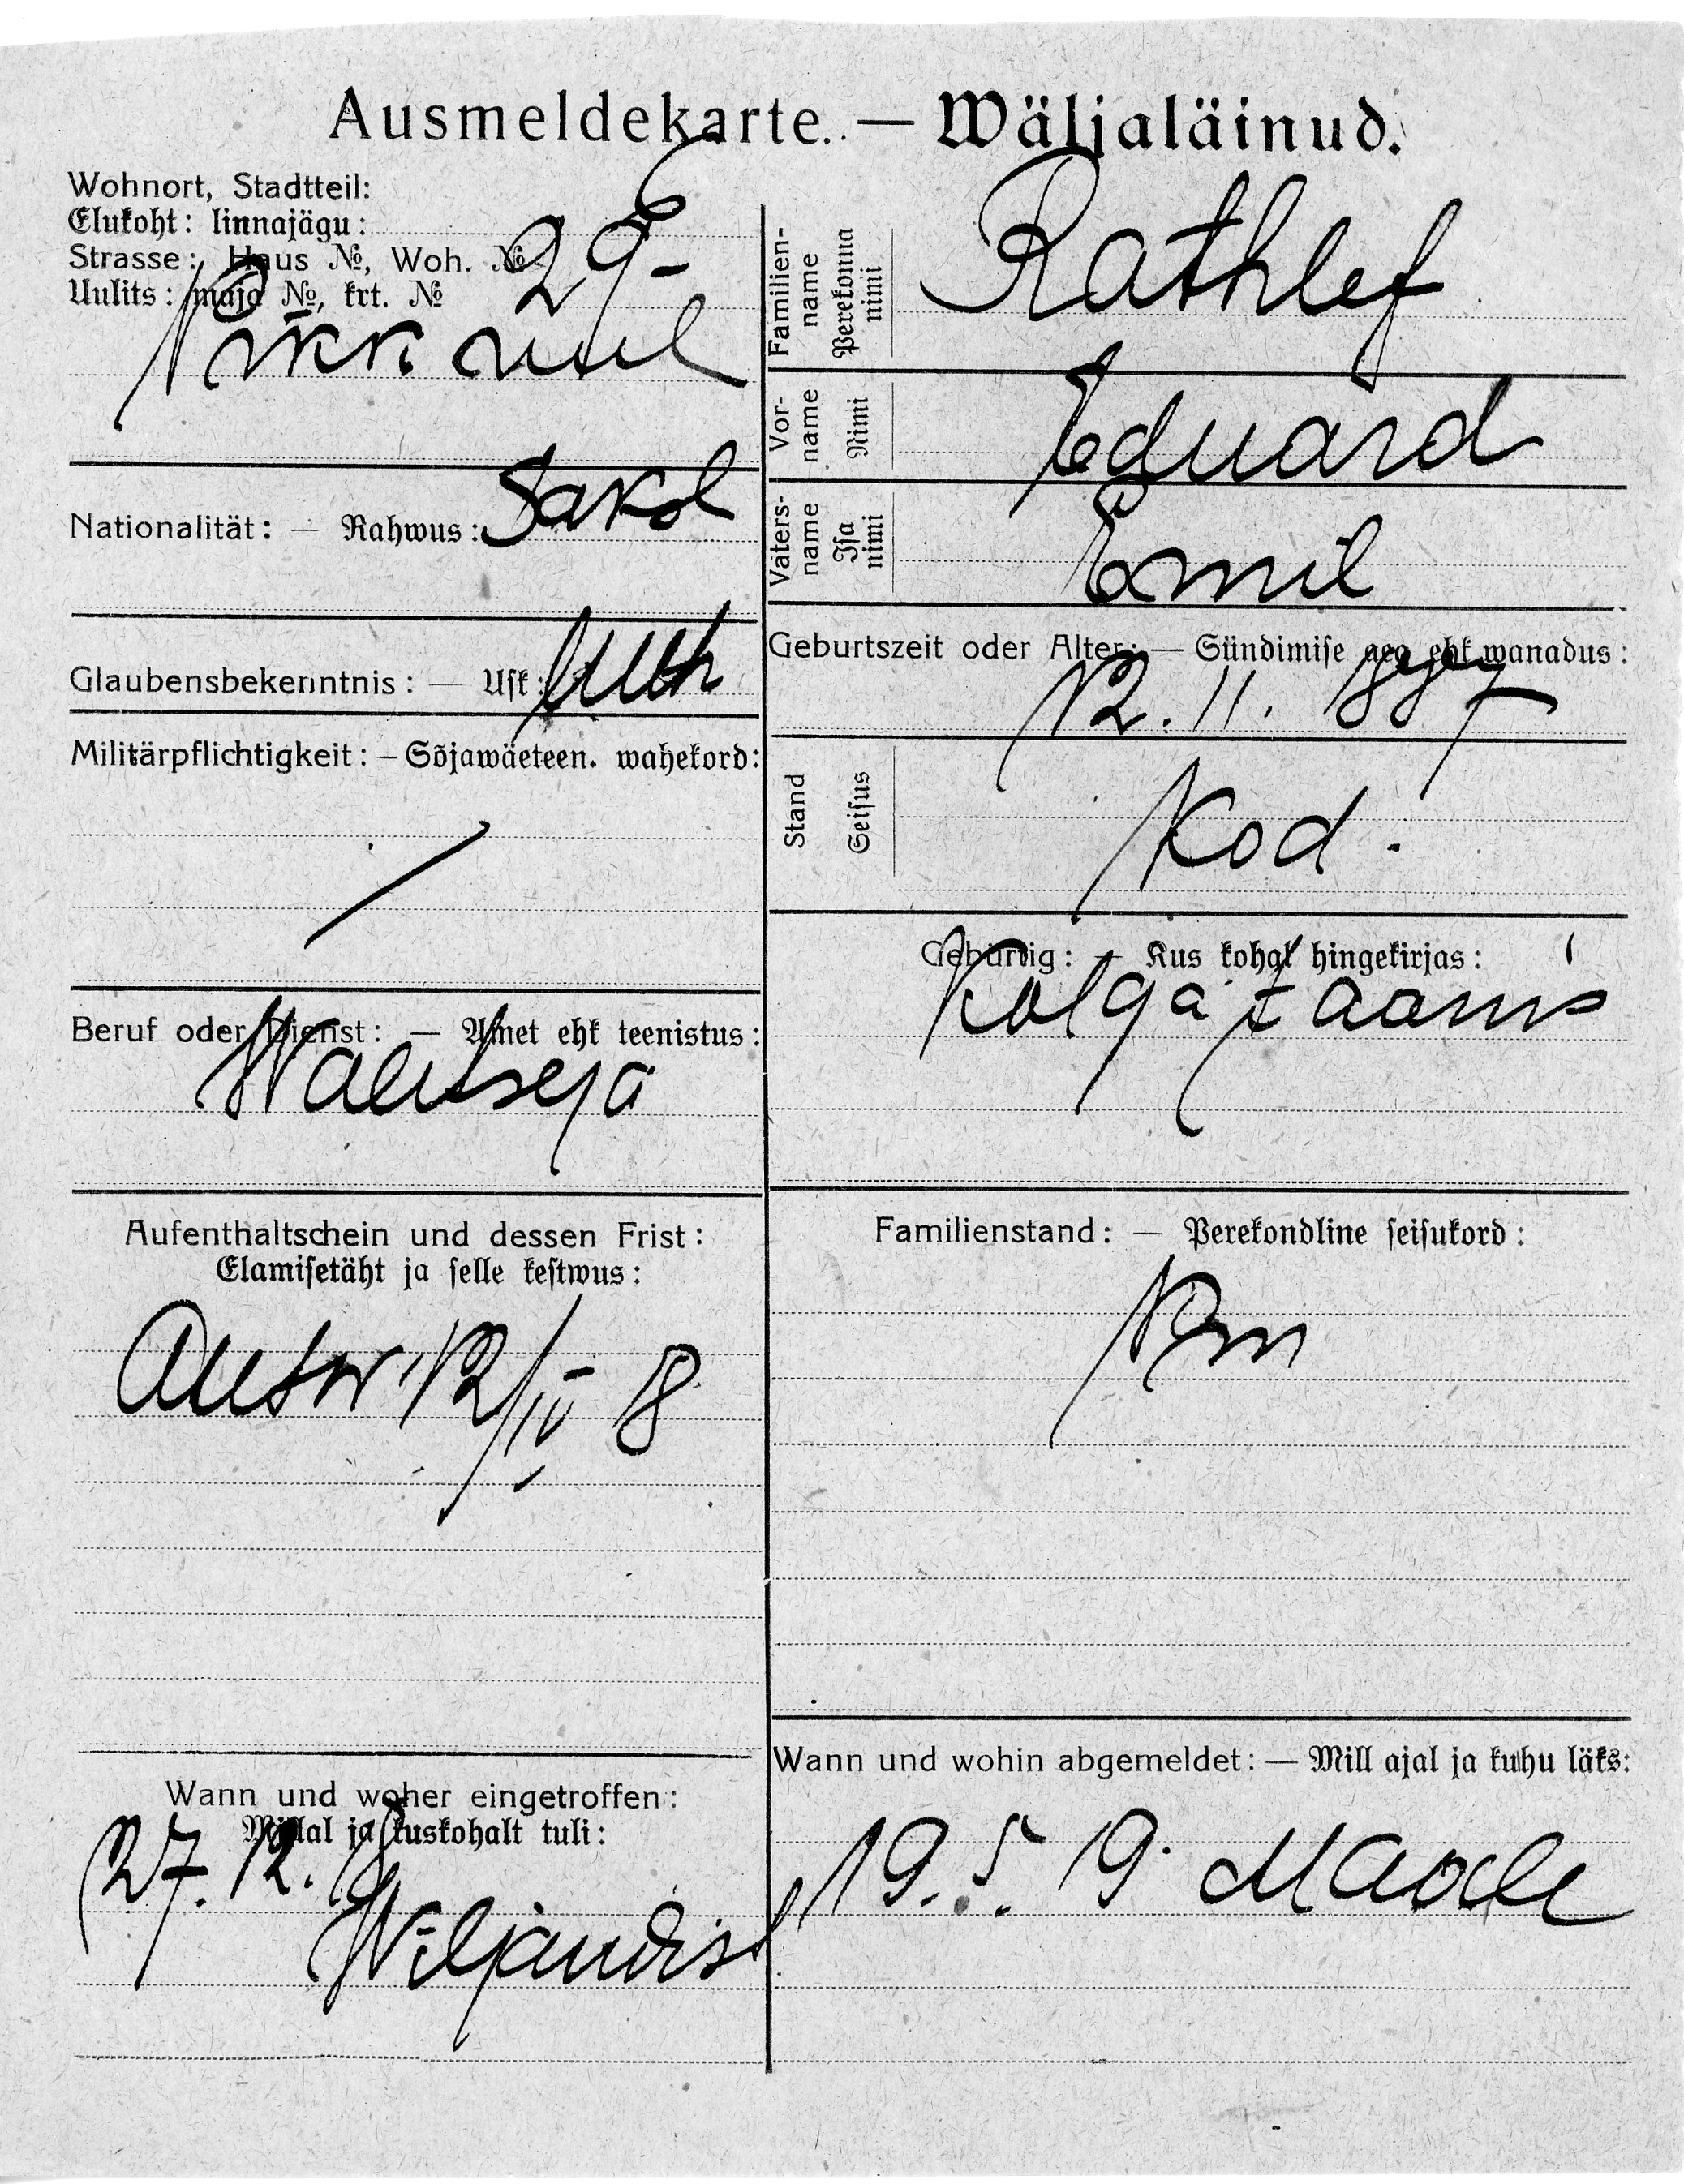 Ausmeldekarte. — Wäljaläinud.
Wohnort, Stadtteil:
Elukoht: linnajägu:
Strasse: Haus №, Woh. №
Uulits: maja №, krt. №
29-6
Pikk uul
Nationalität: — Rahwus: Saksl
Glaubensbekenntnis: — Usk: luth
Militärpflichtigkeit: — Sõjawäeteen. wahekord:
Beruf oder Dienst: — Amet ehk teenistus:
Walitseja
Aufenthaltschein und dessen Frist:
Elamisetäht ja selle kestwus:
Ausw. 12/IV 18
Wann und woher eingetroffen:
Millal ja kuskohalt tuli:
27. 12. 18
Wiljandist
Familien-
name
Perekonna
nimi
Rathlef
Vor-
name
Nimi
Eduard
Vaters-
name
Isa
nimi
Emil
Geburtszeit oder Alter: — Sündimise aeg ehk wanadus:
12. 11.
Stand
Seisus
Kod.
Gebürtig: — Kus kohal hingekirjas:
Kolga
Familienstand: — Perekondline seisukord:
Wann und wohin abgemeldet: — Mill ajal ja kuhu läks:
19. 5. 19. Maale